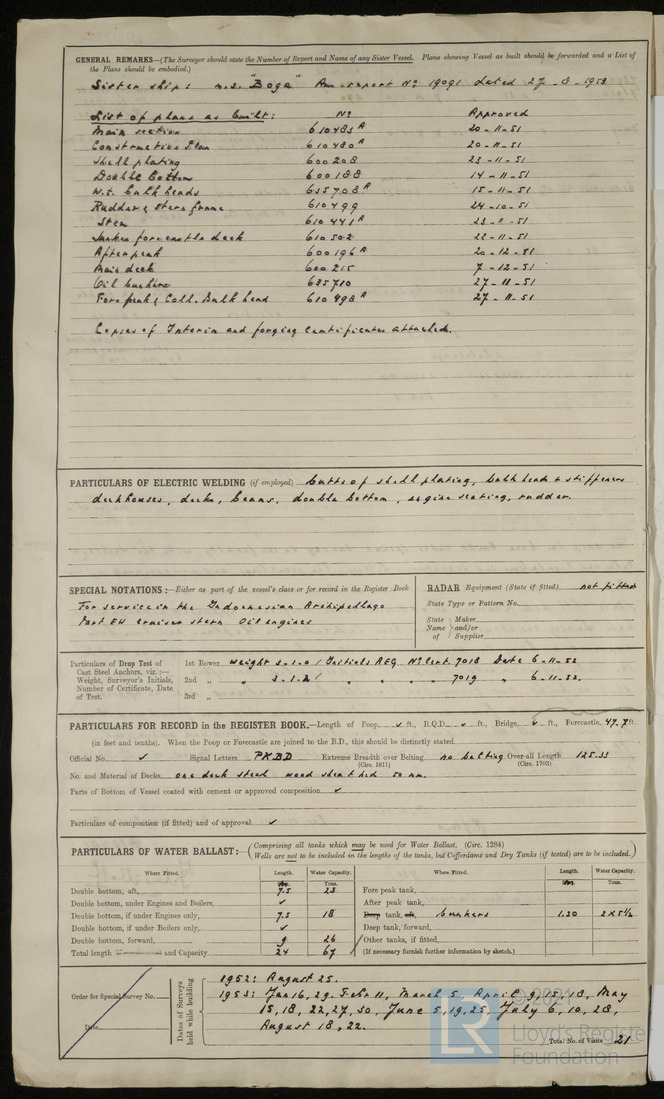 GENERAL REMARKS—(The Surveyor should state the Number of Report and Name of any Sister Vessel. Plans showing Vessel as built should be forwarded and a List of
the Plans should be embodied.)
Sister ship: m.s. "Boga" Am. report No 19091 dated 27-8-1953
List of plans as built: No Approved
Main section 610483A 20-11-51
Construction Plan 610480A 20-11-51
Shell plating 600208 23-11-51
Double bottom 600188 14-11-51
W.T. bulkheads 635708A 15-11-51
Rudder & stern frame 610499 24-10-51
Stem 610441A 23-11-51
Sunken forecastle deck 610502 22-11-51
Afterpeak 600196A 20-12-51
Main deck 600215 7-12-51
Oil bunkers 635710 27-11-51
Forepeak & Coll. Bulkhead 610498A 27-11-51
Copies of Interim and forging certificates attached.
PARTICULARS OF ELECTRIC WELDING (if employed) butts of shell plating, bulkheads & stiffeners
deckhouses, decks, beams, double bottom, engine seating, rudder.
SPECIAL NOTATIONS:—Either as part of the vessel's class or for record in the Register Book
For service in the Indonesian Archipellago
Part EW cruiser stern Oil engines
RADAR Equipment (State if fitted) not fitted
State Type or Pattern No.
State Name of { Maker and/or Supplier
Particulars of Drop Test of Cast Steel Anchors, viz.:— Weight, Surveyor's Initials, Number of Certificate, Date of Test.
1st Bower weight 3-1-0 Initials AEG No Cert. 7018 Date 6-11-52
2nd „ „ 3-1-2 „ „ „ 7019 „ 6-11-52.
3rd „
PARTICULARS FOR RECORD in the REGISTER BOOK.—Length of Poop ✓ ft., R.Q.D. ✓ ft., Bridge ✓ ft., Forecastle 47.7 ft.
(in feet and tenths). When the Poop or Forecastle are joined to the B.D., this should be distinctly stated
Official No. ✓ Signal Letters PKBD Extreme Breadth over Belting (Circ. 1611) no belting Over-all Length (Circ. 1703) 125.33
No. and Material of Decks one deck steel wood sheathed 50 mm.
Parts of Bottom of Vessel coated with cement or approved composition ✓
Particulars of composition (if fitted) and of approval ✓
PARTICULARS OF WATER BALLAST:—(Comprising all tanks which may be used for Water Ballast. (Circ. 1284)
Wells are not to be included in the lengths of the tanks, but Cofferdams and Dry Tanks (if tested) are to be included.)
Where Fitted. Length. Water Capacity. Where Fitted. Length. Water Capacity.
Tons. Tons.
Double bottom, aft, 7.5 23 Fore peak tank,
Double bottom, under Engines and Boilers, ✓ After peak tank,
Double bottom, if under Engines only, 7.5 18 Deep tank, aft, bunkers 1.20 2x5½
Double bottom, if under Boilers only, ✓ Deep tank, forward,
Double bottom, forward, 9 26 Other tanks, if fitted,
Total length and Capacity 24 67 (If necessary furnish further information by sketch.)
Order for Special Survey No.
Date
Dates of Surveys held while building
1952: August 25.
1953: Jan 16, 29. Febr 11, March 5, April 9, 15, 18, May
15, 18, 22, 27, 30, June 5, 19, 25, July 6, 10, 28,
August 18, 22.
Total No. of Visits 21
© 2021
LR
Lloyd's Register
Foundation